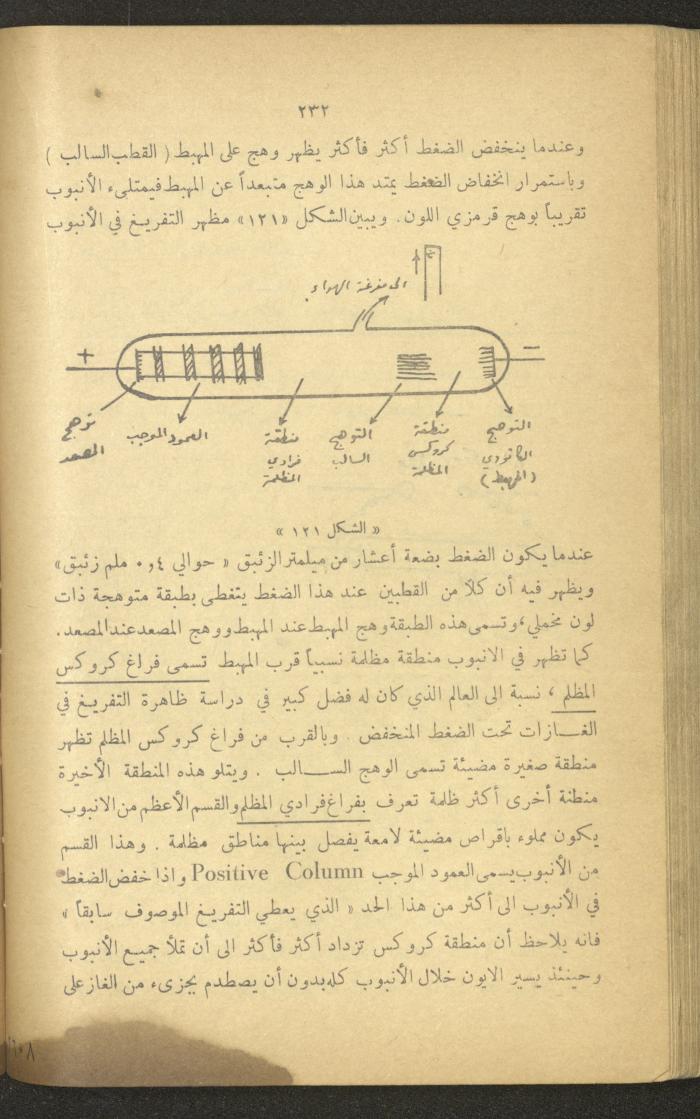 ٢٣٢
وعندما ينخفض الضغط أكثر فأكثر يظهر وهج على المهبط ( القطب السالب )
وباستمرار انخفاض الضغط يمتد هذا الوهج متبعداً عن المهبط فيمتلىء الأنبوب
تقريباً بوهج قرمزي اللون. ويبين الشكل «١٢١» مظهر التفريغ في الأنبوب
الى مفرغة الهواء
+
−
توهج المصعد
العمود الموجب
منطقة فرادي المظلمة
التوهج السالب
منطقة كروكس المظلمة
التوهج الكاثودي (المهبط)
« الشكل ١٢١ »
عندما يكون الضغط بضعة أعشار من ميلمتر الزئبق « حوالي ٠,٤ ملم زئبق»
ويظهر فيه أن كلاً من القطبين عند هذا الضغط يتغطى بطبقة متوهجة ذات
لون مخملي، وتسمى هذه الطبقة وهج المهبط عند المهبط ووهج المصعد عند المصعد.
كما تظهر في الانبوب منطقة مظلمة نسبياً قرب المهبط تسمى فراغ كروكس
المظلم ، نسبة الى العالم الذي كان له فضل كبير في دراسة ظاهرة التفريغ في
الغــازات تحت الضغط المنخفض . وبالقرب من فراغ كروكس المظلم تظهر
منطقة صغيرة مضيئة تسمى الوهج الســـالب . ويتلو هذه المنطقة الأخيرة
منطنة أخرى أكثر ظلمة تعرف بفراغ فرادي المظلم والقسم الأعظم من الانبوب
يكون مملوء باقراص مضيئة لامعة يفصل بينها مناطق مظلمة . وهذا القسم
من الأنبوب يسمى العمود الموجب Positive Column واذا خفض الضغط
في الأنبوب الى أكثر من هذا الحد « الذي يعطي التفريغ الموصوف سابقاً »
فانه يلاحظ أن منطقة كروكس تزداد أكثر فأكثر الى أن تملأ جميع الأنبوب
وحينئذ يسير الايون خلال الأنبوب كله بدون أن يصطدم بجزىء من الغاز على